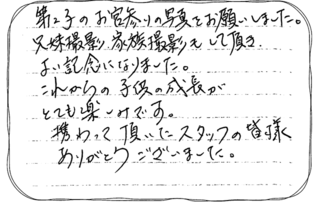 第二子のお宮参りの写真をお願いしました。
兄妹撮影、家族撮影もして頂き
よい記念になりました。
これからの子供の成長が
とても楽しみです。
携わって頂いたスタッフの皆様
ありがとうございました。